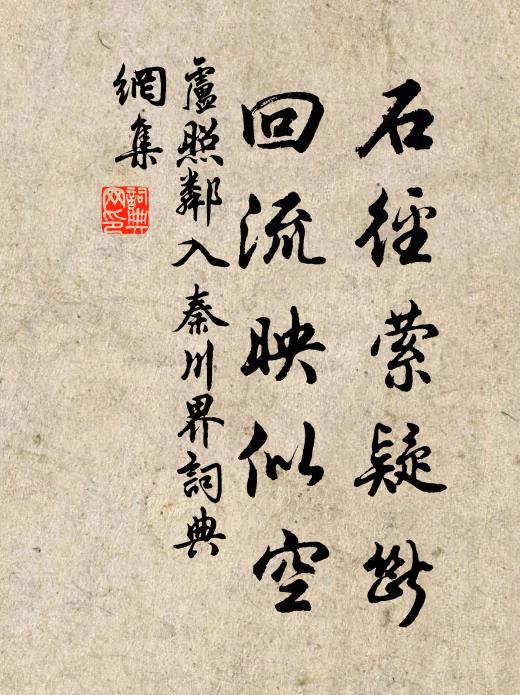 石徑縈疑斷
回流映似空
盧照鄰入秦川界詞典
網集
詞典
网印